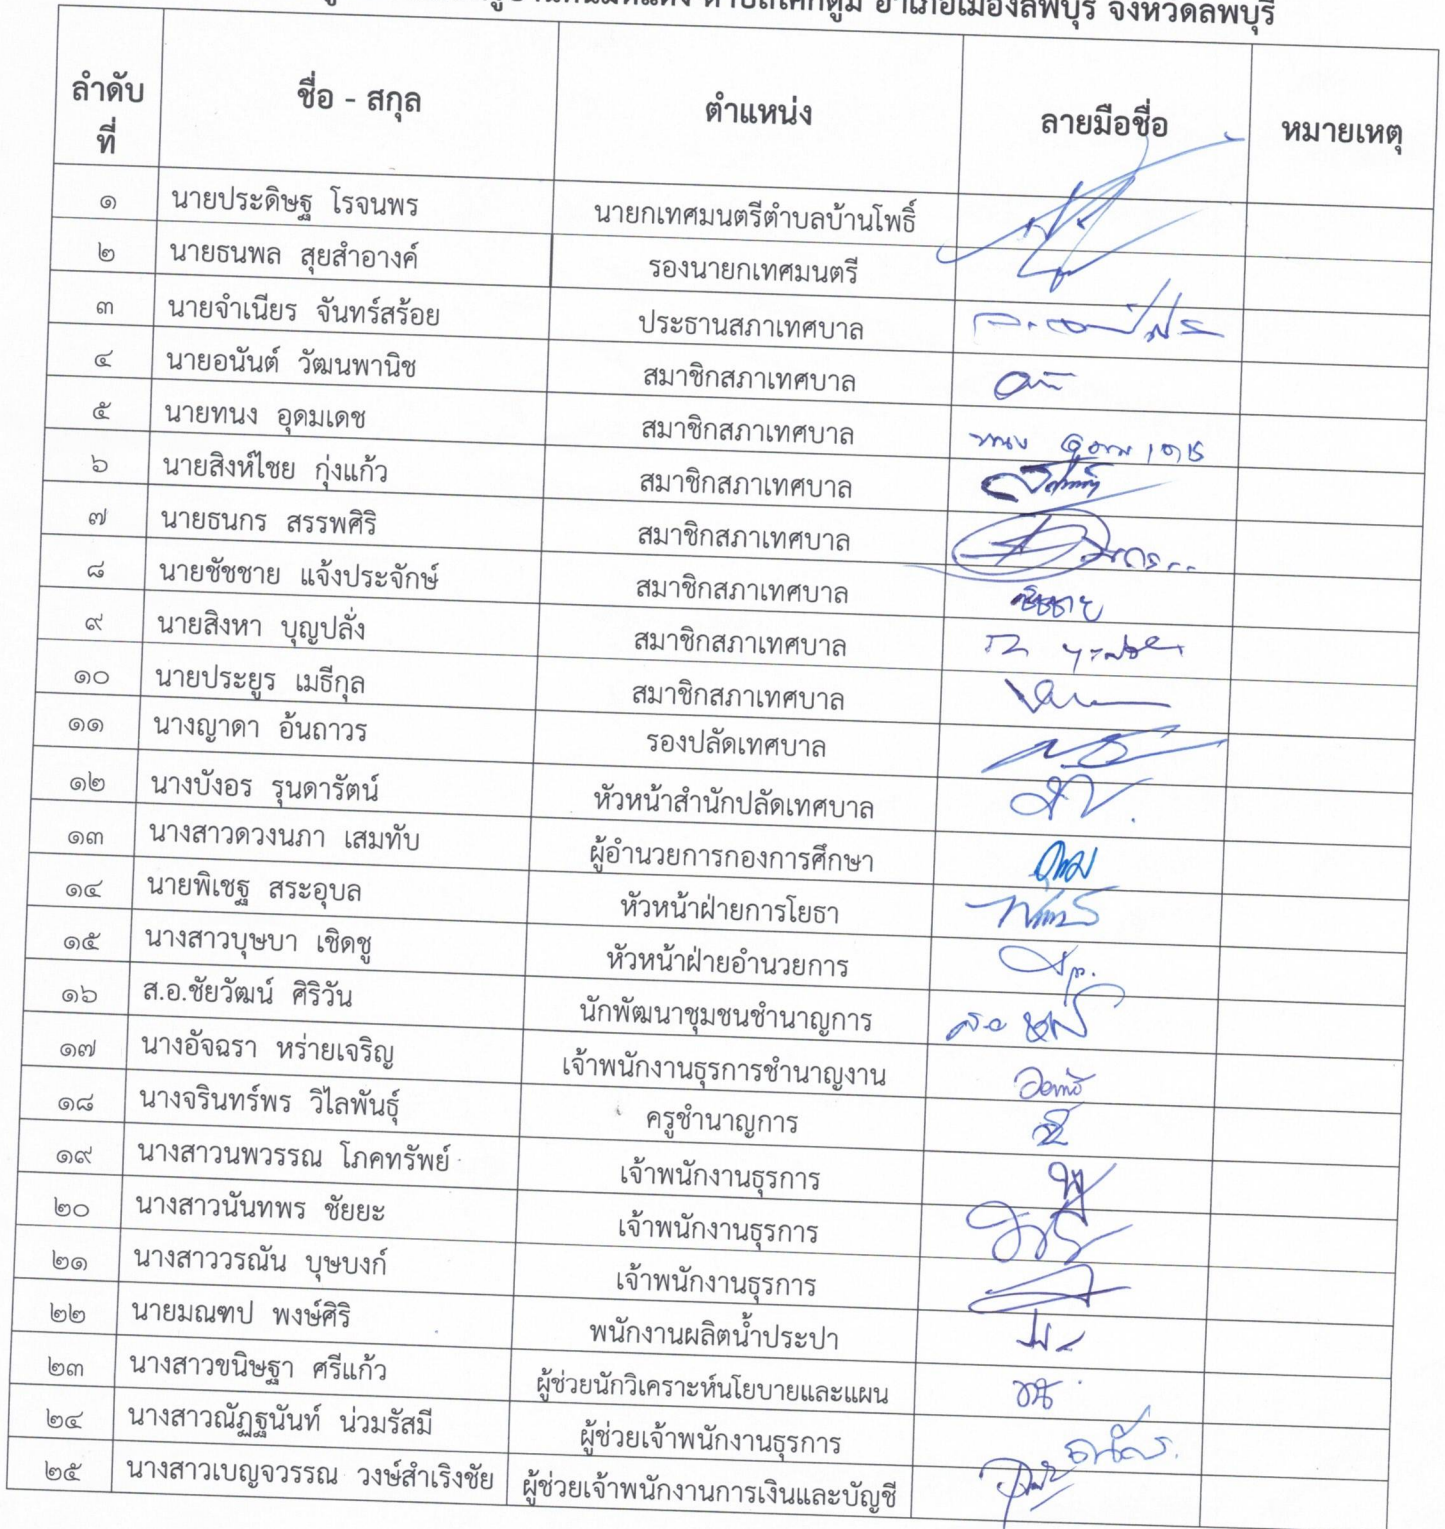 ตำบลโคกตูม อำเภอเมืองลพบุรี จังหวัดลพบุรี
ลำดับที่ ชื่อ - สกุล ตำแหน่ง ลายมือชื่อ หมายเหตุ
๑ นายประดิษฐ โรจนพร นายกเทศมนตรีตำบลบ้านโพธิ์
๒ นายธนพล สุยสำอางค์ รองนายกเทศมนตรี
๓ นายจำเนียร จันทร์สร้อย ประธานสภาเทศบาล
๔ นายอนันต์ วัฒนพานิช สมาชิกสภาเทศบาล
๕ นายทนง อุดมเดช สมาชิกสภาเทศบาล ทนง อุดมเดช
๖ นายสิงห์ไชย กุ่งแก้ว สมาชิกสภาเทศบาล
๗ นายธนกร สรรพศิริ สมาชิกสภาเทศบาล
๘ นายชัชชาย แจ้งประจักษ์ สมาชิกสภาเทศบาล ชัชชาย
๙ นายสิงหา บุญปลั่ง สมาชิกสภาเทศบาล
๑๐ นายประยูร เมธีกุล สมาชิกสภาเทศบาล
๑๑ นางญาดา อ้นถาวร รองปลัดเทศบาล
๑๒ นางบังอร รุนดารัตน์ หัวหน้าสำนักปลัดเทศบาล
๑๓ นางสาวดวงนภา เสมทับ ผู้อำนวยการกองการศึกษา
๑๔ นายพิเชฐ สระอุบล หัวหน้าฝ่ายการโยธา
๑๕ นางสาวบุษบา เชิดชู หัวหน้าฝ่ายอำนวยการ
๑๖ ส.อ.ชัยวัฒน์ ศิริวัน นักพัฒนาชุมชนชำนาญการ
๑๗ นางอัจฉรา หร่ายเจริญ เจ้าพนักงานธุรการชำนาญงาน
๑๘ นางจรินทร์พร วิไลพันธุ์ ครูชำนาญการ
๑๙ นางสาวนพวรรณ โภคทรัพย์ เจ้าพนักงานธุรการ
๒๐ นางสาวนันทพร ชัยยะ เจ้าพนักงานธุรการ
๒๑ นางสาววรณัน บุษบงก์ เจ้าพนักงานธุรการ
๒๒ นายมณฑป พงษ์ศิริ พนักงานผลิตน้ำประปา
๒๓ นางสาวขนิษฐา ศรีแก้ว ผู้ช่วยนักวิเคราะห์นโยบายและแผน
๒๔ นางสาวณัฏฐนันท์ น่วมรัสมี ผู้ช่วยเจ้าพนักงานธุรการ
๒๕ นางสาวเบญจวรรณ วงษ์สำเริงชัย ผู้ช่วยเจ้าพนักงานการเงินและบัญชี